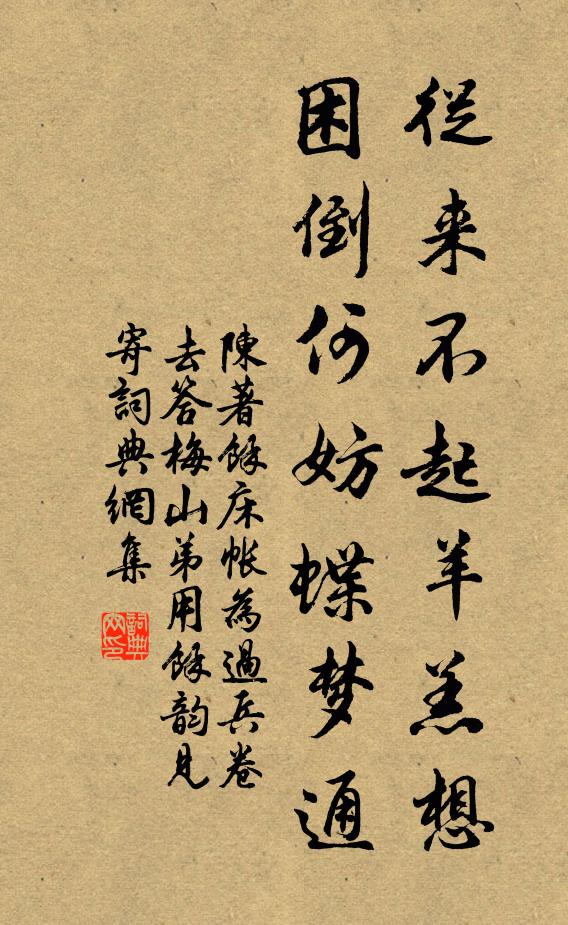 從来不起羊羔想
困倒何妨蝶梦通
陳著餘床帐為過兵卷
去答梅山弟用餘韵見
寄詞典網集
詞典網印